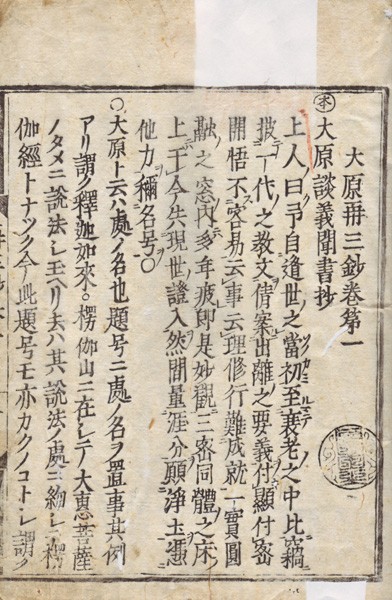 大原再三鈔卷第一
本 大原談義聞書抄
上人曰予自逢世之當初至衰老之中比竊
披一代之教文倩案出離之要義付顯付密
開悟不容易云事云理修行難成就一實圓
融之窓內多年疲即是妙觀三密同體之床
上于今失現世證入然間量涯分願淨土憑
他力稱名号
〇大原ト云ハ處ノ名也題号ニ處ノ名ヲ置事其例
アリ謂ク釋迦如來。楞伽山ニ在シテ大惠菩薩
ノタメニ說法シ玉ヘリ去ハ其說法ノ處ニ約シ楞
伽經トナツク今此題号モ亦カクノコトシ謂ク